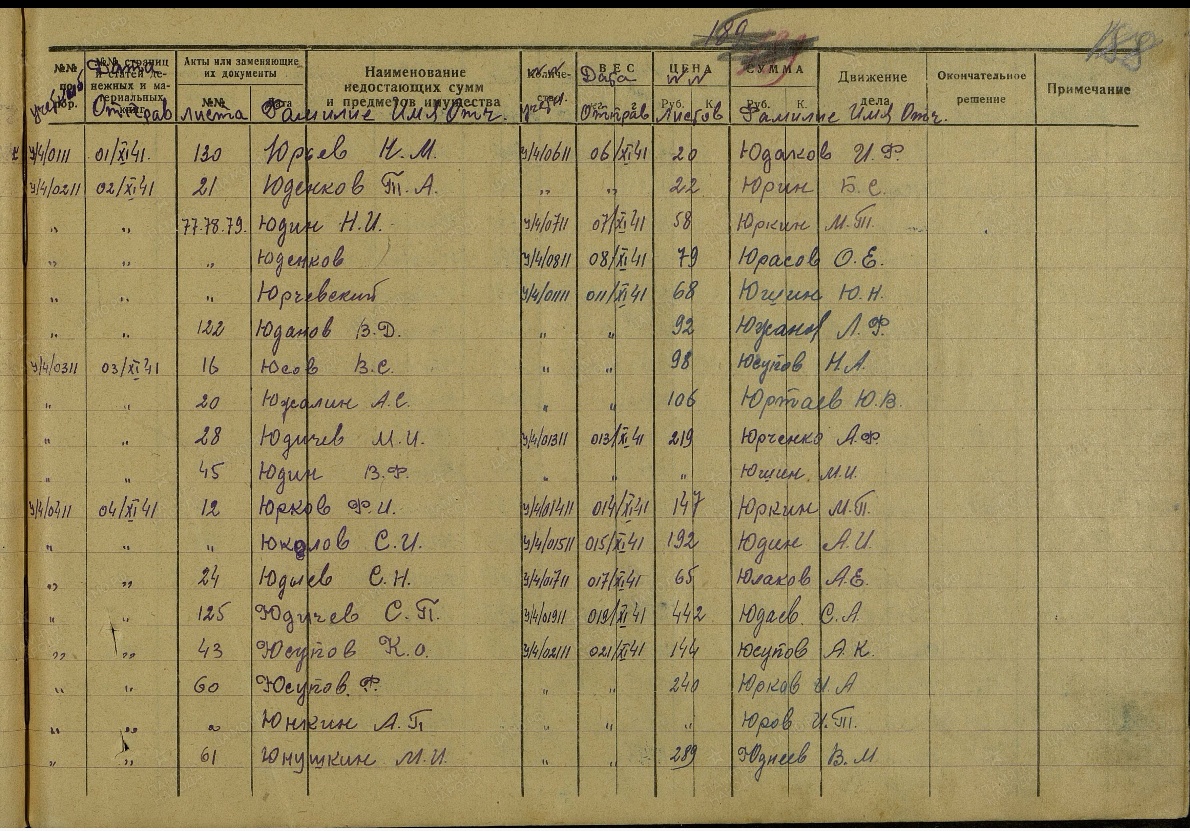 189
188
№№ по пор.
№№ страниц и статей денежных и материальных книг
Акты или заменяющие их документы
№№
Дата
Наименование недостающих сумм и предметов имущества
Количество
ВЕС
ЦЕНА
Руб. К.
СУММА
Руб. К.
Движение дела
Окончательное решение
Примечание
Дата Отправ листа Фамилие Имя Отч. №№ Дата Отправ №№ Листов Фамилие Имя Отч.
У/4/0111 01/XI 41. 130 Юрьев Н. М. У/4/0611 06/XI 41 20 Юдаков И. Ф.
У/4/0211 02/XI 41 21 Юденков П. А. „ „ 22 Юрин Б. С.
„ „ 77.78.79. Юдин Н.И. У/4/0711 07/XI 41 58 Юркин М.П.
„ „ „ Юденков У/4/0811 08/XI 41 79 Юрасов О.Е.
„ „ „ Юрчевский У/4/01111 011/XI 41 68 Юшин Ю.Н.
„ „ 122 Юданов В.Д. „ „ 92 Южанов Л.Ф.
У/4/0311 03/XI 41 16 Юсов В.С. „ „ 98 Юсупов Н.А.
„ „ 20 Южалин А.С. „ „ 106 Юртаев Ю.В.
„ „ 28 Юдичев М.И. У/4/01311 013/XI 41 219 Юрченко А.Ф.
„ „ 45 Юдин В.Ф. „ „ „ Юшин М.И.
У/4/0411 04/XI 41 12 Юрков Ф.И. У/4/01411 014/XI 41 147 Юркин М.П.
„ „ „ С.И. У/4/01511 015/XI 41 192 Юдин А.И.
„ „ 24 Юдаев С.Н. У/4/01711 017/XI 41 65 Юлаков А.Е.
„ „ 125 Юдичев С.П. У/4/01911 019/XI 41 442 Юдаев С.А
„ „ 43 Юсупов К.О. У/4/02111 021/XI 41 144 Юсупов А.К.
„ „ 60 Юсупов Ф. „ „ 240 Юрков И.А
„ „ „ Юнкин А.П „ „ „ Юров И.П.
„ „ 61 Юнушкин М.И. „ „ 289 Юднеев В.М